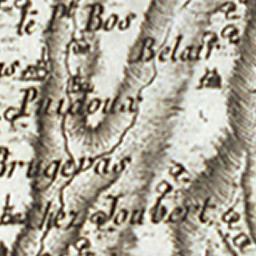 le Pt Bos
Belair
Puidoux
Brugeras
chez Joubert